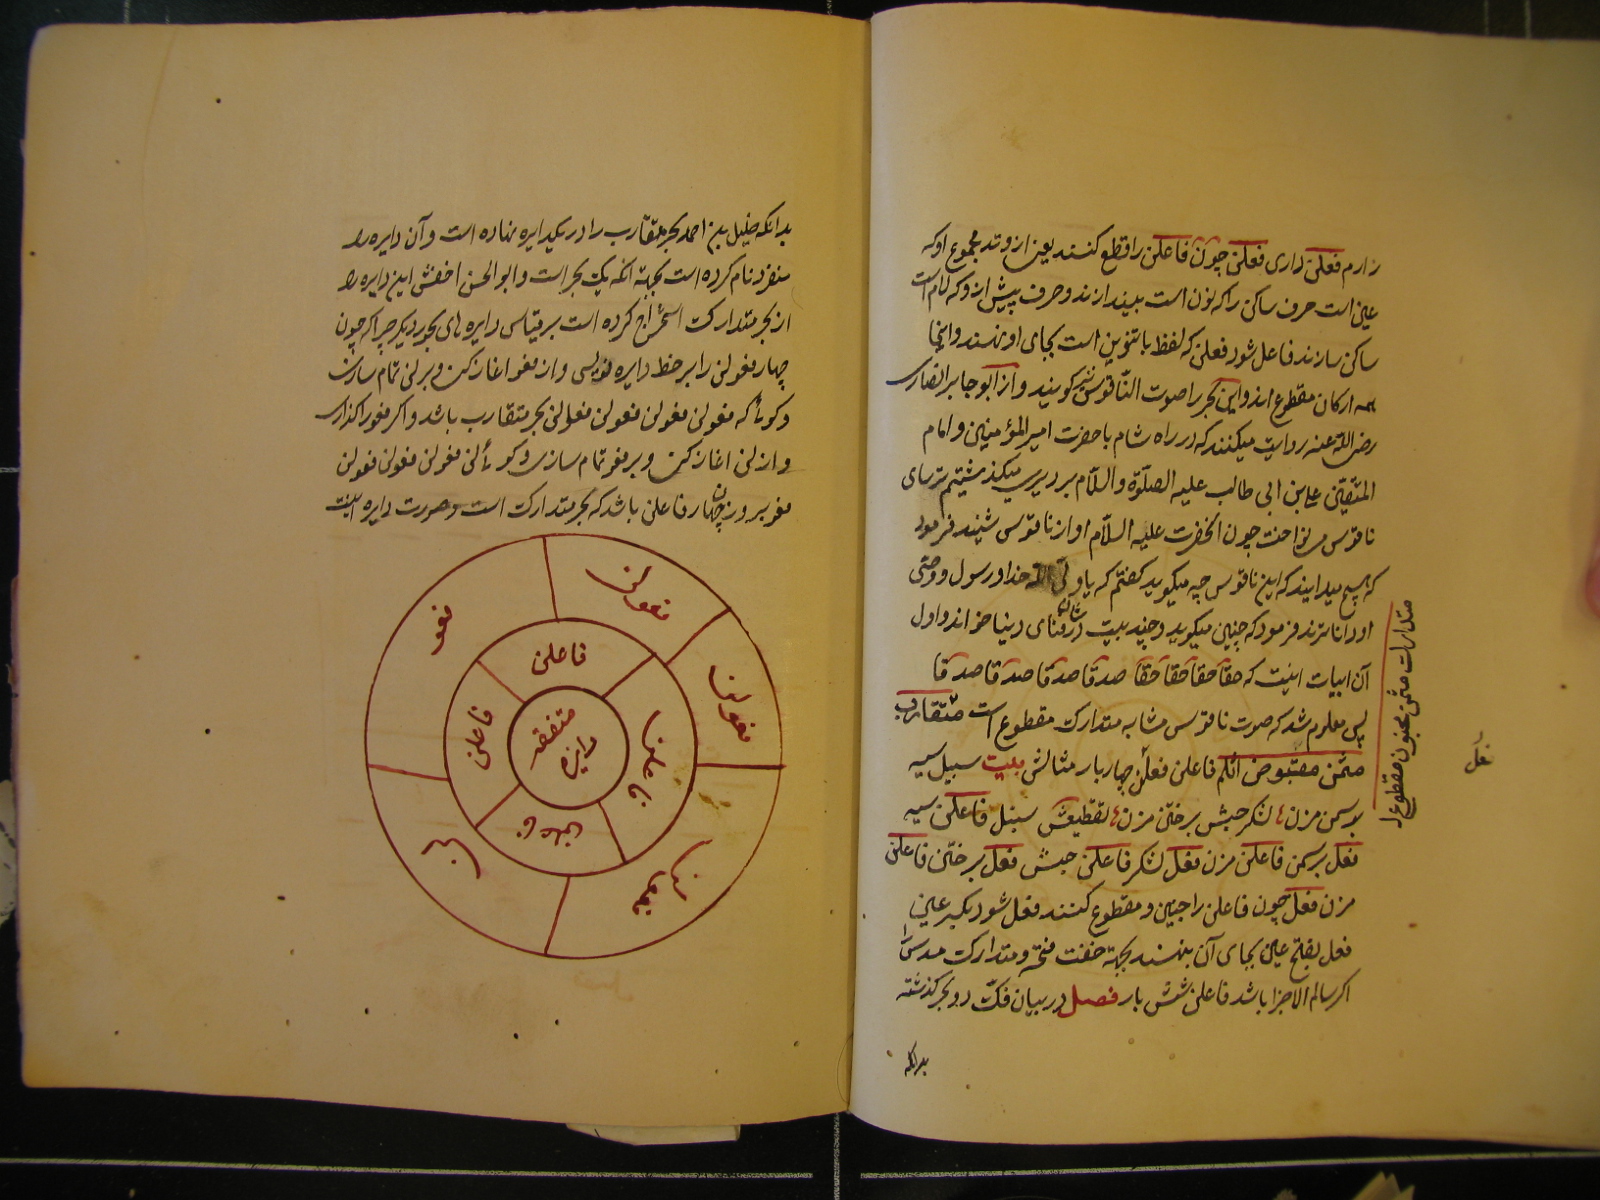 دارم فعلن داری فعلن چون فاعلن را قطع کنند یعنی از وتد مجموع او که
علن است حرف ساکن را که نون است بیندازند و حرف پیش ازو که لام است
ساکن سازند فاعل شود فعلن که لفظ با تنوین است بجای او نهند و اینجا
همه ارکان مقطوع اند و این بحر را صوت الناقوس نیز کویند و از ابو جابر انصاری
رضی الله عنه روایت میکنند که در راه شام با حضرت امیر المؤمنین و امام
المتقین علی بن ابی طالب علیه الصلوة و السلام بر دیری میکذشتیم ترسای
ناقوس می نواخت چون انحضرت علیه السلام اواز ناقوس شنید فرمود
که هیچ میدانید که این ناقوس چه میکوید کفتم که یا ولی الله خدا و رسول و وصی
او داناترند فرمود که چنین میکوید و چند بیت در فنای دنیا خواند و اول
آن ابیات اینست که حقا حقا حقا حقا صدقا صدقا صدقا صدقا
پس معلوم شد که صوت ناقوس مشابه متدارک مقطوع است متقارب
مثمن مقبوض اثلم فاعلن فعل چهار بار مثالش بیت سبیل سیه
بر سمن مزن لشکر حبش بر ختن مزن تقطیعش سبیل فاعلن سیه
فعل بر سمن فاعلن مزن فعل لشکر فاعلن حبش فعل بر ختن فاعلن
مزن فعل چون فاعلن را خبن و مقطوع کنند فعل شود بکسر عین
فعل بفتح عین بجای آن بنهند بجهة خفت فتحه و متدارک مسدس را
اکر سالم الاجزا باشد فاعلن شش بار فصل در بیان فک دو بحر کذشته
بدانکه
متدارک مثمن مخبون مقطوع
فعل
بدانکه خلیل بن احمد بحر متقارب را در یکدایره نهاده است و آن دایره را
منفرد نام کرده است بجهة انکه یک بحر است و ابو الحسن اخفش این دایره را
از بحر متدارک استخراج کرده است بر قیاس دایره های بحور دیکر چرا که چون
چهار فعولن را بر خط دایره نویسی و از فعو اغاز کنی و بر لن تمام سازی
و کویی که فعولن فعولن فعولن فعولن بحر متقارب باشد و اکر فعو را کذاری
و از لن اغاز کنی و بر فعو تمام سازی و کویی لن فعولن فعولن فعولن
فعو بر وزن چهار فاعلن باشد که بحر متدارک است و صورت دایره اینست
فعولن
فعولن
فعولن
لن
فعو
فاعلن
فاعلن
فاعلن
فاعلن
دایره
متفقه